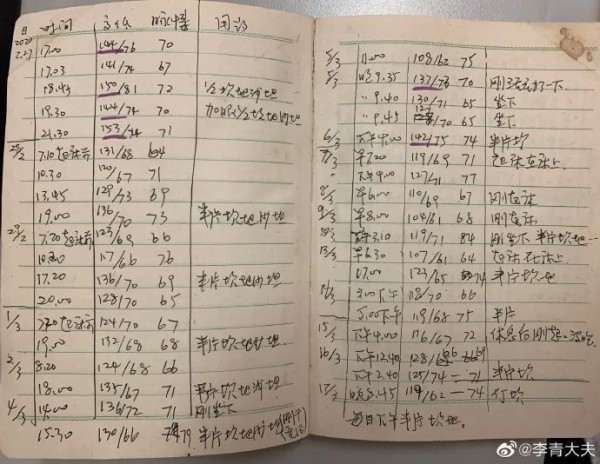 日 时间 高/低 脉搏 用药
2020
2.27 17.00 144/76 70
17.03 141/74 67
18.45 150/81 72 坎地沙坦
19.30 144/74 70 坎地沙坦
21.30 153/74 71
28/2 7.10起床前 131/68 64
10.30 120/67 71
13.45 129/73 69
19.00 136/70 73 半片坎地沙坦
29/2 7.20起床前 123/69 66
10.20 117/66 76
17.20 136/70 69 半片坎地沙坦
20.00 128/70 65
1/3 7.20起床前 124/70 67
19.00 132/68 68 半片坎地沙坦
2/3 8.20 124/68 66
18.00 135/67 71 半片坎地沙坦
4/3 14.00 136/72 71 刚坐下
15.30 130/66 79 半片坎地沙坦
5/3 11.00 108/62 75
5/3 晚9.35 137/78 70 刚
" 9.40 130/71 65 坐下
" 9.45 /70 65 坐下
6/3 下午4.00 142/75 74 半片坎
7/3 早7.20 119/69 71 起床在床上
下午4.00 127/71 77
8/3 早6.00 110/69 67 刚起床
9/3 早8.00 104/61 68 刚起床
3.10 119/71 84 刚坐下 半片坎地
13/3 早6.30 107/61 64 在床上
17.00 123/65 74 半片坎地
3.00下午 118/70 66
5.00下午 119/68 75 半片
15/3 下午4.00 116/67 72 休息后刚起
16/3 下午12.40 128/
下午2.40 125/74 — 71 半片坎
17/3 晚8.45 119/62 — 74
每日下午半片坎地
@李青大夫